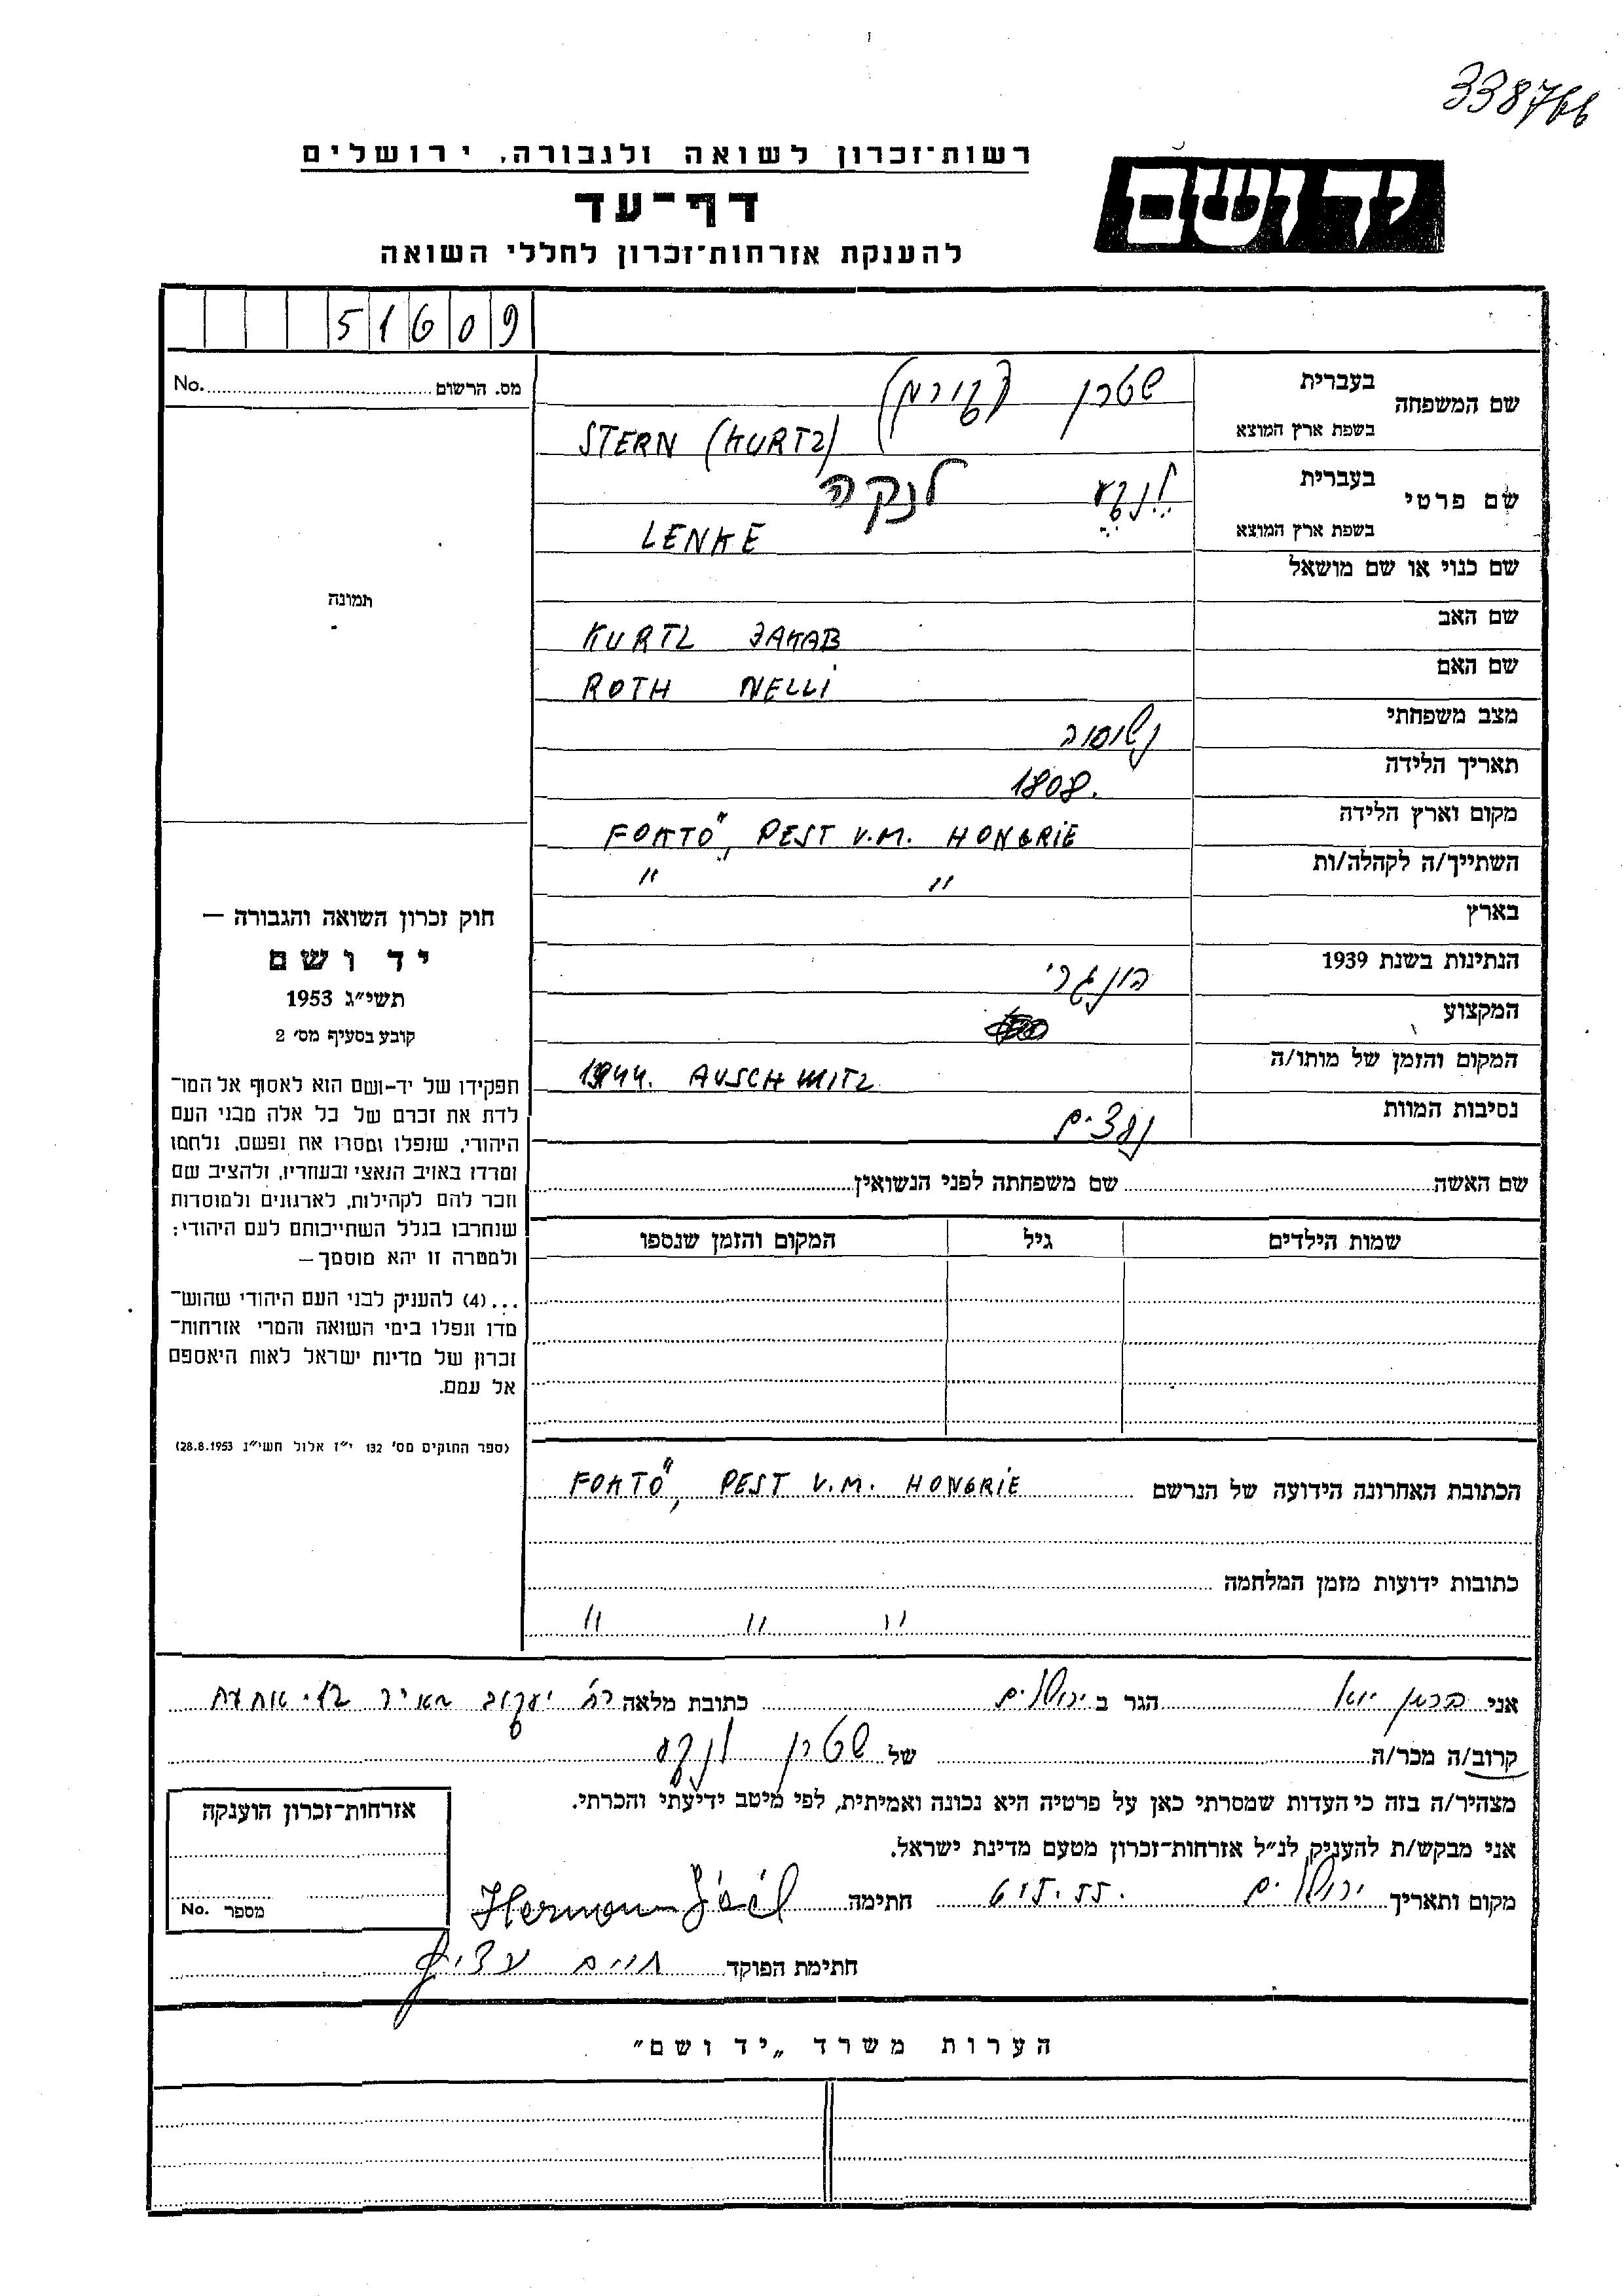 338766
רשות־זכרון לשואה ולגבורה, ירושלים
יד ושם
דף־עד
להענקת אזרחות־זכרון לחללי השואה
51609
מס. הרשום No.
שם המשפחה
בעברית שטרן (קורץ)
בשפת ארץ המוצא STERN (KURTZ)
שם פרטי
בעברית לֶנְקֶע לנקה
בשפת ארץ המוצא LENKE
שם כנוי או שם מושאל
תמונה
שם האב KURTZ JAKAB
שם האם ROTH NELLI
מצב משפחתי נשואה
תאריך הלידה 1808.
מקום וארץ הלידה FOKTŐ, PEST V.M. HONGRIE
השתייך/ה לקהלה/ות " "
בארץ
הנתינות בשנת 1939 הונגרי
המקצוע
המקום והזמן של מותו/ה 1944. AUSCHWITZ
נסיבות המוות
שם האשה שם משפחתה לפני הנשואין
שמות הילדים גיל המקום והזמן שנספו
חוק זכרון השואה והגבורה —
יד ושם
תשי״ג 1953
קובע בסעיף מס׳ 2
תפקידו של יד-ושם הוא לאסוף אל המו־
לדת את זכרם של כל אלה מבני העם
היהודי, שנפלו ומסרו את נפשם, נלחמו
ומרדו באויב הנאצי ובעוזריו, ולהציב שם
וזכר להם לקהילות, לארגונים ולמוסדות
שנחרבו בגלל השתייכותם לעם היהודי;
ולמטרה זו יהא מוסמך —
...(4) להעניק לבני העם היהודי שהוש־
מדו ונפלו בימי השואה והמרי אזרחות־
זכרון של מדינת ישראל לאות היאספם
אל עמם.
(ספר החוקים מס׳ 132 י״ז אלול תשי״ג 28.8.1953)
הכתובת האחרונה הידועה של הנרשם FOKTŐ, PEST V.M. HONGRIE
כתובות ידועות מזמן המלחמה
" " "
אני הרמן יואל הגר ב ירושלים כתובת מלאה רח׳ יעקוב מאיר
קרוב/ה מכר/ה של שטרן לנקע
מצהיר/ה בזה כי העדות שמסרתי כאן על פרטיה היא נכונה ואמיתית, לפי מיטב ידיעתי והכרתי.
אני מבקש/ת להעניק לנ״ל אזרחות־זכרון מטעם מדינת ישראל.
מקום ותאריך ירושלים חתימה Hermann Jóél
חתימת הפוקד חיים
אזרחות־זכרון הוענקה
מספר No.
הערות משרד „יד ושם״